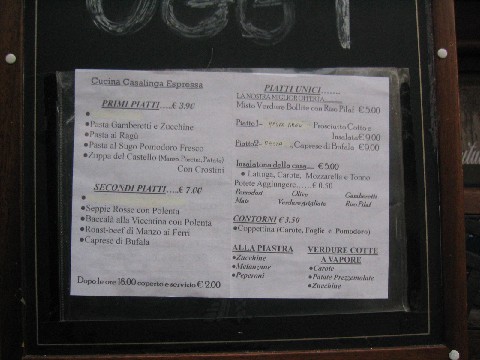 OGGI
Cucina Casalinga Espressa
PRIMI PIATTI.....€ 3.90
Pasta Gamberetti e Zucchine
Pasta al Ragù
Pasta al Sugo Pomodoro Fresco
Zuppe del Castello
Con Crostini
SECONDI PIATTI.....€ 7.00
Seppie Rosse con Polenta
Baccalà alla Vicentina con Polenta
Roast-beef di Manzo ai Ferri
Caprese di Bufala
Dopo le ore 18.00 coperto e servizio € 2.00
PIATTI UNICI
LA NOSTRA MIGLIOR OFFERTA
Misto Verdure Bollite con Riso Pilaf € 5.00
Piatto 1- Prosciutto Cotto e
Insalata € 9.00
Piatto 2- Caprese di Bufala € 9.00
Insalatona della casa..... € 5.00
Latuga, Carote, Mozzarella e Tonno
Potete Aggiungere.....€ 0.50
Pomodori Olive Gamberetti
Mais Verdure grigliate Riso Pilaf
CONTORNI € 3.50
Coppettina (Carote, Fagile e Pomodoro)
ALLA PIASTRA
Zucchine
Melanzane
Peperoni
VERDURE COTTE
A VAPORE
Carote
Patate Prezzemolate
Zucchine